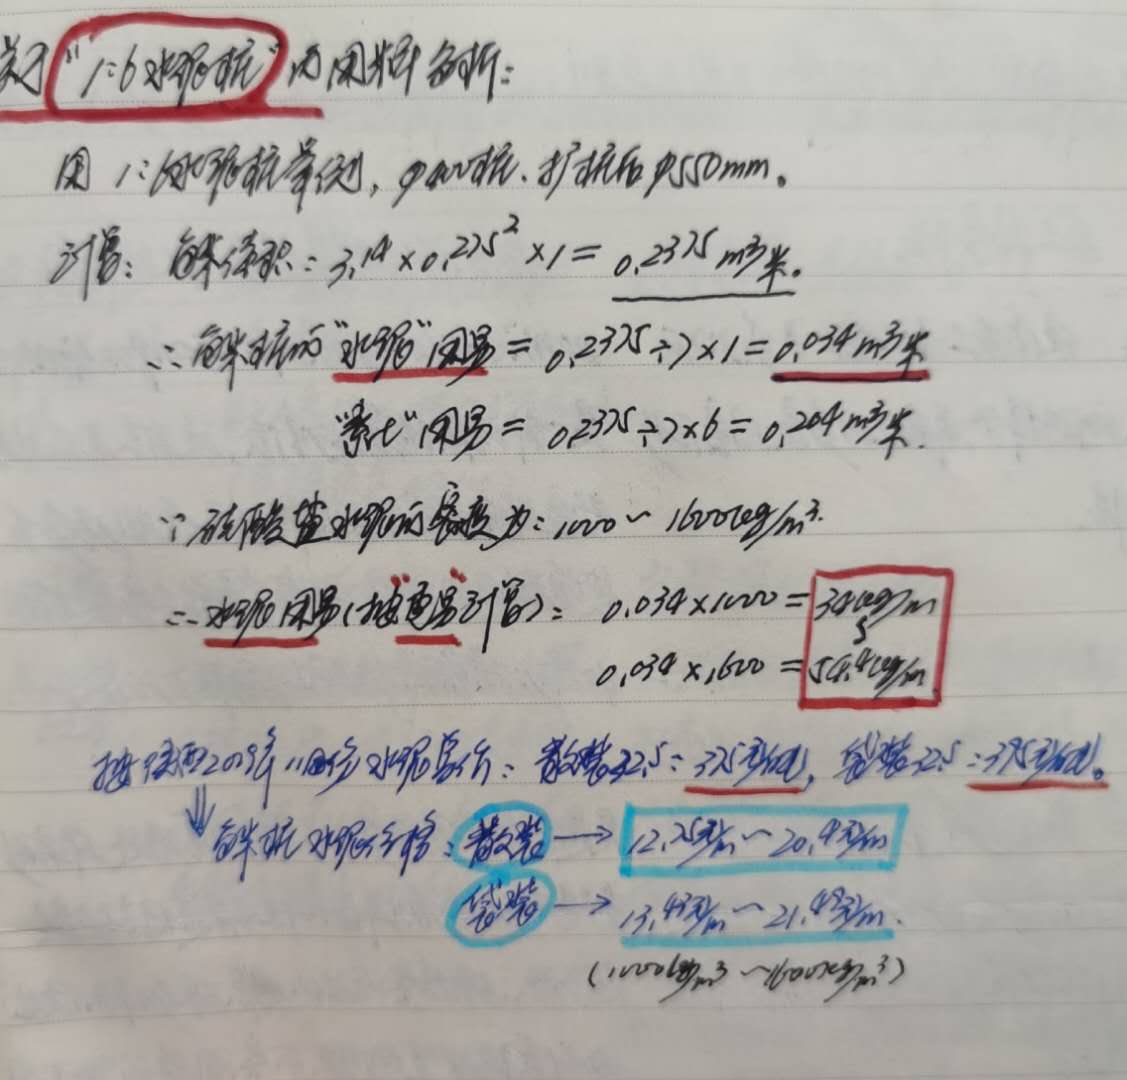 关于"1:6水泥桩"的用料分析:
用1:6水泥桩举例, φ400桩、扩桩后φ550mm。
计算: 每米体积: 3.14×0.275²×1=0.2375m³/米。
∴ 每米桩的"水泥"用量=0.2375÷7×1=0.034m³/米
"素土"用量=0.2375÷7×6=0.204m³/米.
∵ 硅酸盐水泥的密度为: 1000~1600kg/m³.
∴ 水泥用量(按"重量"计算): 0.034×1000=34kg/m
~
0.034×1600=54.4kg/m
按陕西 年11月份水泥 价: 散装32.5: 375元/吨, 袋装32.5: 395元/吨。
⇓ 每米桩水泥价格: 散装→12.75元/m~20.4元/m
袋装→13.43元/m~21.49元/m.
(1000kg/m³~1600kg/m³)